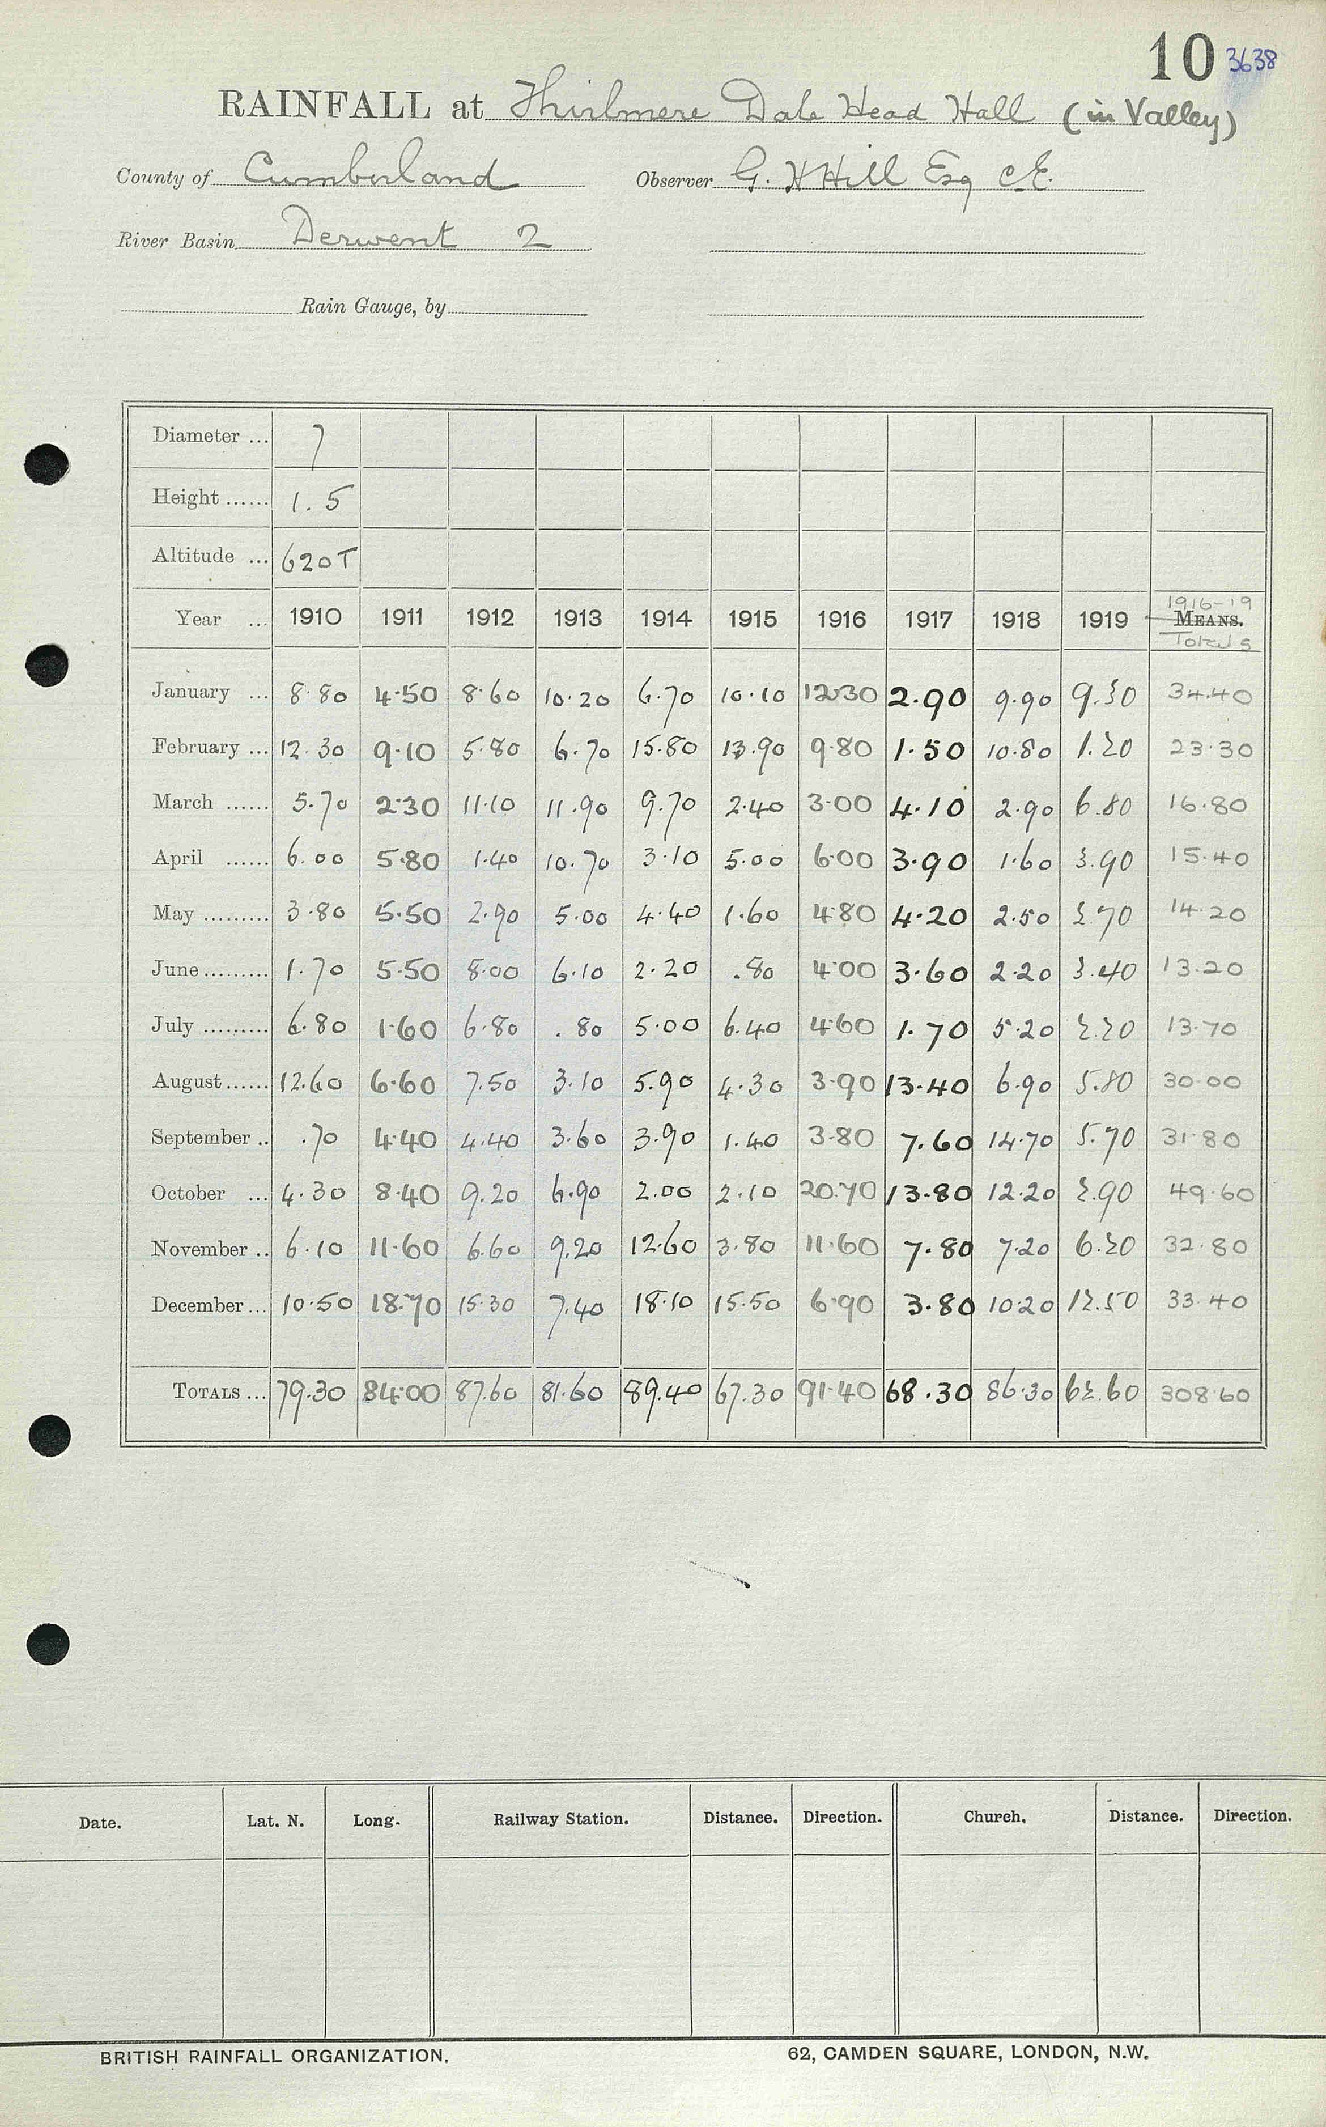 10 3638
RAINFALL at Thirlmere Dale Head Hall (in Valley)
County of Cumberland Observer G. H Hill Esq C.E.
River Basin Derwent 2
Rain Gauge, by
Diameter ... 7
Height ...... 1.5
Altitude ... 620 T
Year ... 1910 1911 1912 1913 1914 1915 1916 1917 1918 1919 1916-19 MEANS. Totals
January ... 8.80 4.50 8.60 10.20 6.70 10.10 12.30 2.90 9.90 9.30 34.40
February ... 12.30 9.10 5.80 6.70 15.80 13.90 9.80 1.50 10.80 1.20 23.30
March ...... 5.70 2.30 11.10 11.90 9.70 2.40 3.00 4.10 2.90 6.80 16.80
April ...... 6.00 5.80 1.40 10.70 3.10 5.00 6.00 3.90 1.60 3.90 15.40
May ......... 3.80 5.50 2.90 5.00 4.40 1.60 4.80 4.20 2.50 2.70 14.20
June ......... 1.70 5.50 8.00 6.10 2.20 .80 4.00 3.60 2.20 3.40 13.20
July ......... 6.80 1.60 6.80 .80 5.00 6.40 4.60 1.70 5.20 2.20 13.70
August ...... 12.60 6.60 7.50 3.10 5.90 4.30 3.90 13.40 6.90 5.80 30.00
September .. .70 4.40 4.40 3.60 3.90 1.40 3.80 7.60 14.70 5.70 31.80
October ... 4.30 8.40 9.20 6.90 2.00 2.10 20.70 13.80 12.20 2.90 49.60
November .. 6.10 11.60 6.60 9.20 12.60 3.80 11.60 7.80 7.20 6.20 32.80
December ... 10.50 18.70 15.30 7.40 18.10 15.50 6.90 3.80 10.20 12.50 33.40
TOTALS ... 79.30 84.00 87.60 81.60 89.40 67.30 91.40 68.30 86.30 62.60 308.60
Date. Lat. N. Long. Railway Station. Distance. Direction. Church. Distance. Direction.
BRITISH RAINFALL ORGANIZATION. 62, CAMDEN SQUARE, LONDON, N.W.